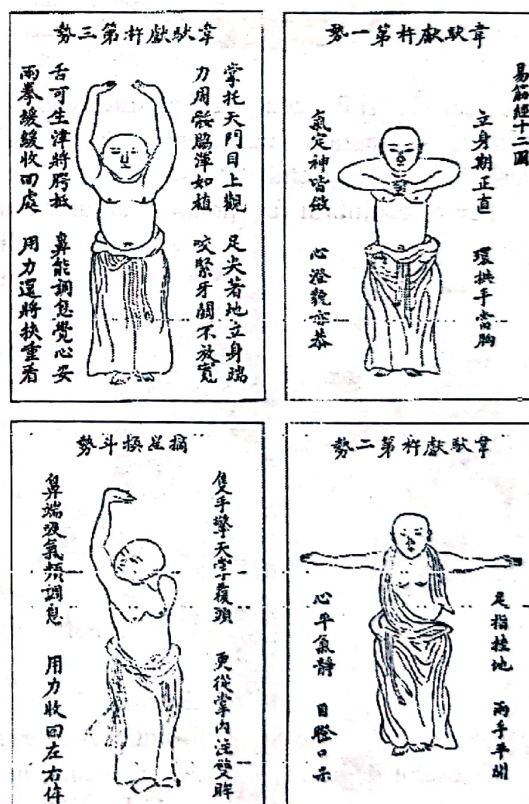 易筋經十二圖
韋馱獻杵第一勢
立身期正直
環拱手當胸
氣定神皆斂
心澄貌亦恭
韋馱獻杵第二勢
足指挂地
兩手平開
心平氣靜
目瞪口呆
韋馱獻杵第三勢
掌托天門目上觀
足尖著地立身端
力周骽脇渾如植
咬緊牙關不放寬
舌可生津將腭抵
鼻能調息覺心安
兩拳緩緩收回處
用力還將挾重看
摘星換斗勢
隻手擎天掌覆頭
更從掌內注雙眸
鼻端吸氣頻調息
用力收回左右侔